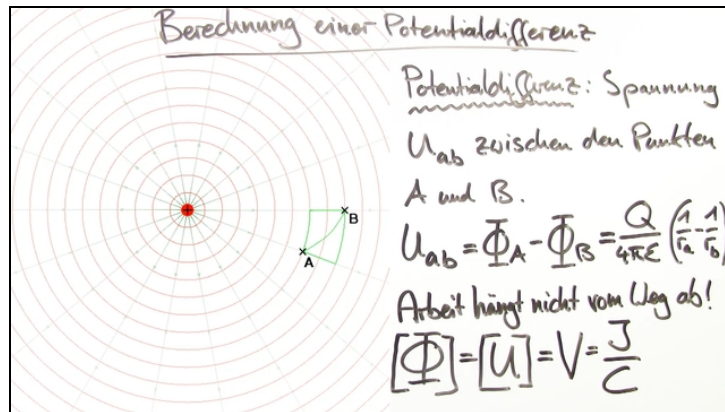 Berechnung einer Potentialdifferenz
Potentialdifferenz: Spannung
U_ab zwischen den Punkten
A und B.
U_ab = Φ_A - Φ_B = Q/4πε (1/r_a - 1/r_b)
Arbeit hängt nicht vom Weg ab!
[Φ] = [U] = V = J/C
B
A